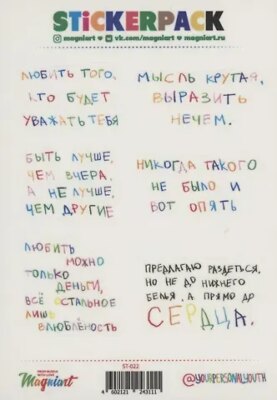 STICKERPACK
magniart vk.com/magniart magniart.ru
ЛЮБИТЬ ТОГО,
КТО БУДЕТ
УВАЖАТЬ ТЕБЯ
МЫСЛЬ КРУТАЯ,
ВЫРАЗИТЬ
НЕЧЕМ.
БЫТЬ ЛУЧШЕ,
ЧЕМ ВЧЕРА,
А НЕ ЛУЧШЕ,
ЧЕМ ДРУГИЕ
НИКОГДА ТАКОГО
НЕ БЫЛО И
ВОТ ОПЯТЬ
ЛЮБИТЬ
МОЖНО
ТОЛЬКО
ДЕНЬГИ,
ВСЁ ОСТАЛЬНОЕ
ЛИШЬ
ВЛЮБЛЁНОСТЬ
ПРЕДЛАГАЮ РАЗДЕТЬСЯ,
НО НЕ ДО НИЖНЕГО
БЕЛЬЯ, А ПРЯМО ДО
СЕРДЦА.
Magniart
ST-022
4 602121 243111
@YOURPERSONALYOUTH